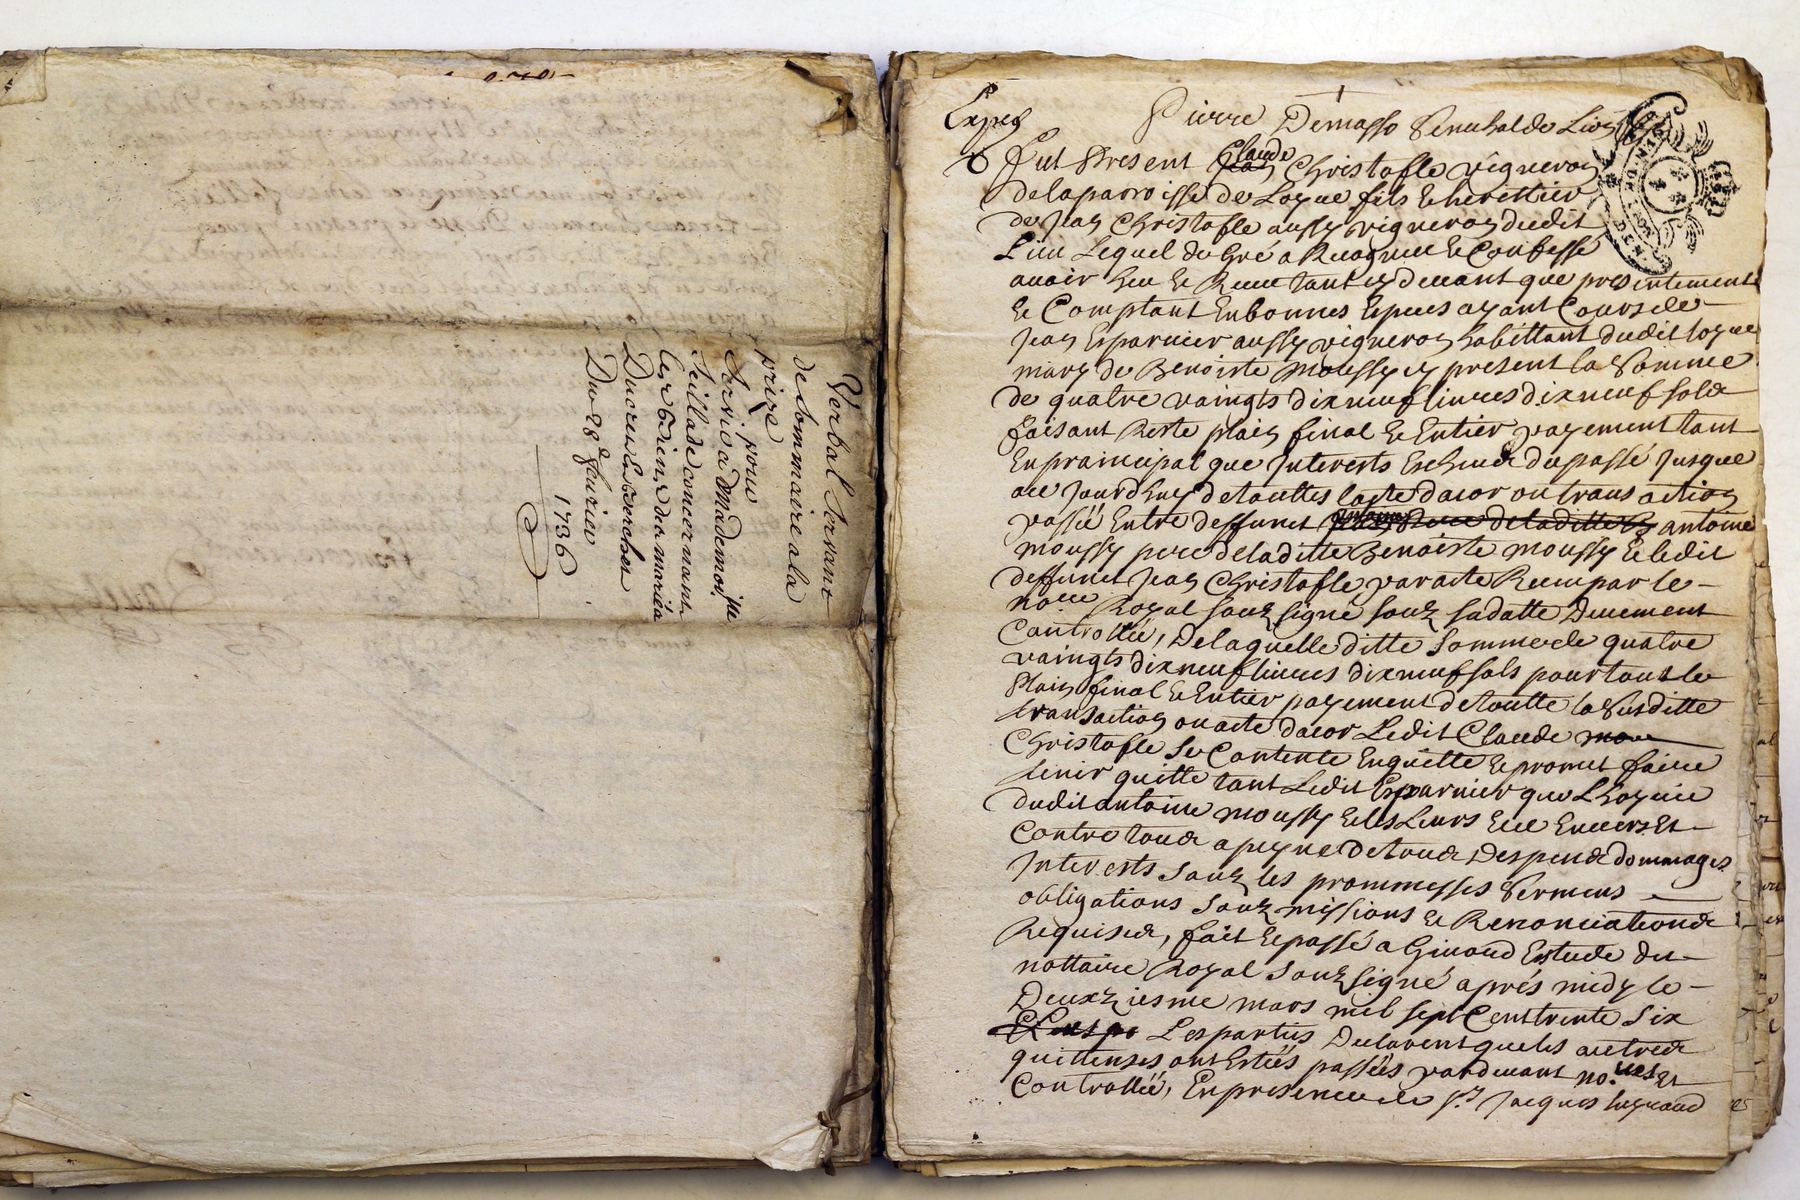 Verbal servant
de sommaire a la
prise
pour
Servir a Mademoi.lle
Seillade concernant
les biens des mariés
Ducreu & Bercher
Du 28.e feurier
1736
Exped
Pierre Demasso Senechal de Lion
Fut Present Claude Christofle vigneron
de la parroisse de Logue fils & herittier
de Jean Christofle aussy vigneron dudit
Lieu Lequel de Gré a Recognu & Confessé
auoir heu & Receu tant cy deuant que presentement
& Comptant En bonnes Especes ayant Cours de
Jean Esparnier aussy vigneron habittant dudit logue
mary de Benoiste Moussy cy present la Somme
de quatre vaingts dix neuf liures dix neuf sols
faisant Reste plain final & Entier payement tant
En prainsipal que Interests Escheus du passé Jusque
au Jourdhuy de touttes lacte dacor ou transaction
passée Entre deffunct antoine
moussy pere de laditte Benoiste moussy & ledit
deffunct Jean Christofle par acte Receu par le
no.re Royal souz signé souz sa datte Deuement
Controllée, De laquelle ditte Somme de quatre
vaingts dix neuf liures dix neuf sols pour tout le
Plain final & Entier payement de toutte la Susditte
transaction ou acte dacor Ledit Claude
Christofle Se Contente En quitte & promet faire
tenir quitte tant Ledit Esparnier que L'hoyrie
dudit antoine moussy & les Leurs Enuers Et
Contre tous a peyne de tous Despens dommages
Interests souz les prommesses Sermens
obligations souzmissions & Renonciations
Requises, fait & passé a Estude du
nottaire Royal souz signé aprés midy le
Deuxziesme mars mil sept Cent trente Six
Les parties Declarent que les autres
quittenses ont Estées passées par deuant no.res Et
Controllée, En presence de s.r Jacques